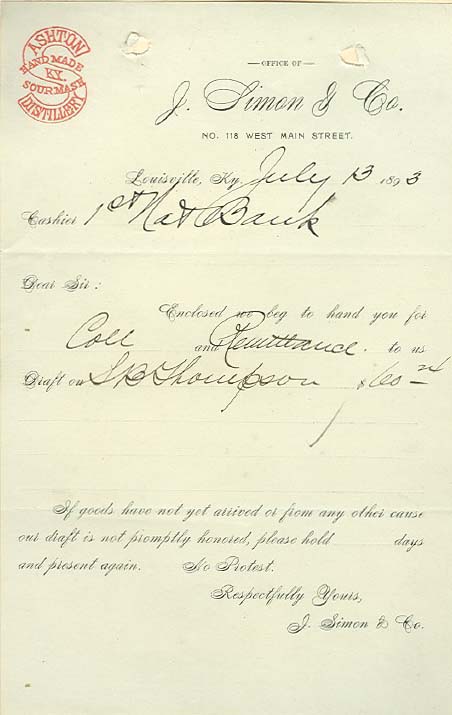 ASHTON
HANDMADE
KY.
SOURMASH
DISTILLERY
— OFFICE OF —
J. Simon & Co.
NO. 118 WEST MAIN STREET.
Louisville, Ky. July 13 1893
Cashier 1st Nat Bank
Dear Sir:
Enclosed we beg to hand you for
Coll and Remittance. to us
Draft on S B Thompson $60
If goods have not yet arrived or from any other cause
our draft is not promptly honored, please hold days
and present again. No Protest.
Respectfully Yours,
J. Simon & Co.